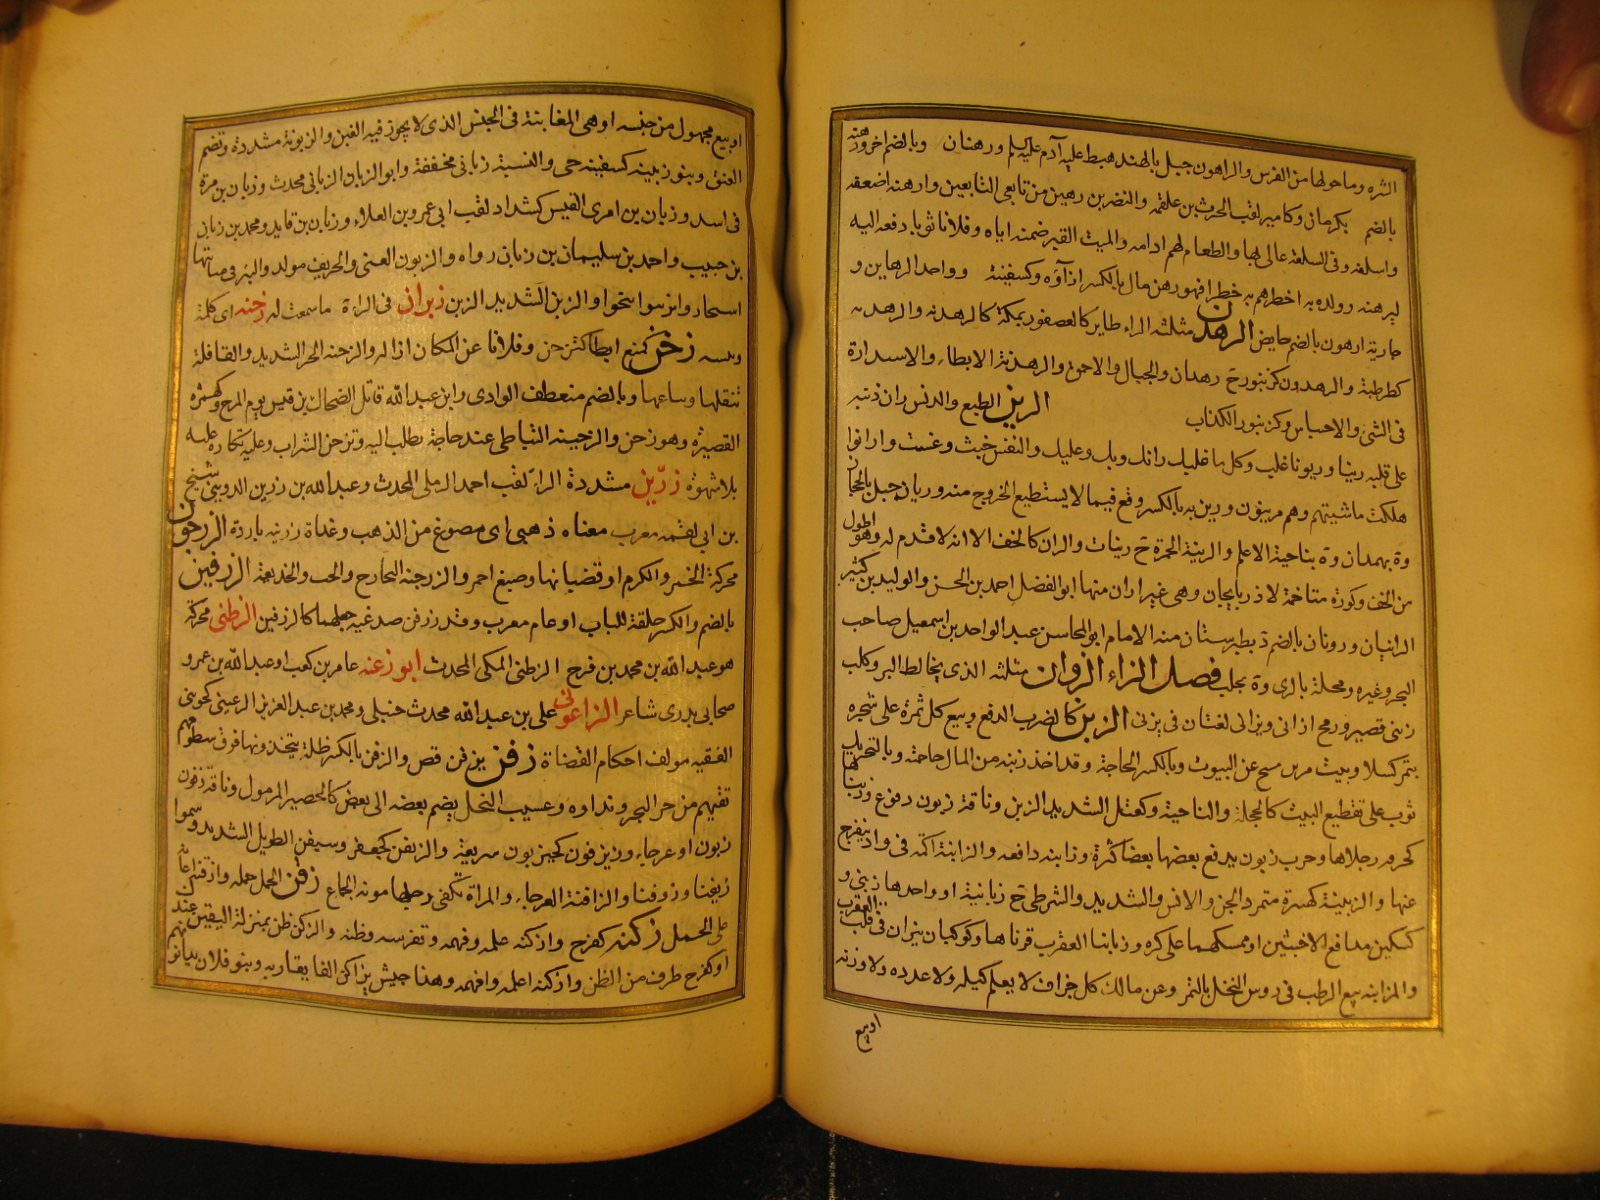 الشره وماحولها من الفرس والراهون جبل بالهند هبط عليه آدم عليه السلم ورهنان وبالضم اخرورهنه
بالضم بكرمان وكامير لقب الحرث بن علقمه والنضر بن رهين من تابعى التابعين وارهنه اضعفه
واسلفه وفى السلعة غالى بها والطعام لهم ادامه والميت القبر ضمنه اياه وفلانا ثوبا دفعه اليه
ليرهنه وولده به اخطرهم به خطرا فهورهن مال بالكسر اذاؤه وكسفينة وواحد الرهاين و
جارية ارهون بالضم حايض الرهدن مثلثه الراء طاير كالعصفور بمكة كالرهدنه والرهدنه
كطرطبة والرهدون كزنبور ج رهدان والجبال والاحمق والرهدنة الابطاء والاستدارة
فى الشى والاحباس وكزنبور الكذاب الرين الطبع والدنس ران ذنبه
على قلبه رينا وريونا غلب وكل ما غلبك رانك وبك وعليك والنفس خبث وغست وارانوا
هلكت ماشيتهم وهم مرينون ورين به بالكسر وقع فيما لا يستطيع الخروج منه وريان جبل بالحجاز
وة بهمدان وة بناحية الاعلم والرينة الخمرة ج رينات والران كالخف الا انه لا قدم له وهو اطول
من الخف وكورة متاخمة لاذربايجان وهى غير اران منها ابو الفضل احمد بن الحسن والوليد بن كثير
الرانيان ورونان بالضم ة بطبرستان منه الامام ابو المحاسن عبد الواحد بن اسمعيل صاحب
البحر وغيره ومحلة بالرى وة بحلب فصل الزاء الزوان مثلثه الذى يخالط البر وكلب
زئنى قصير ورمح ازانى ويزانى لغتان فى يزنى الزبن كالضرب الدفع وبيع كل ثمرة على شجره
بتمر كيلا وبيت مزبن متنح عن البيوت وبالكسر الحاجة وقد اخذ زبنه من المال حاجته وبالتحريك
ثوب على تقطيع البيت كالحجلة والناحية وكعتل الشديد الزبن وناقة زبون دفوع وزبنتاها
كحرقه رجلاها وحرب زبون يدفع بعضها بعضا كثرة وزابنه دافعه والزابنة اكمة فى واد ينعرج
عنها والزبنية كهبرية متمرد الجن والانس والشديد والشرطى ج زبانية او واحدها زبنى و
كسكين مدافع الاخبثين او ممسكهما على كره وزبانيا العقرب قرناها وكوكبان نيران فى قلب العقرب
والمزابنه بيع الرطب فى روس النخل بالتمر وعن مالك كل جزاف لا يعلم كيله ولا عدده ولا وزنه
او بيع
او بيع مجهول من جنسه او هى المغابنة فى الجنس الذى لا يجوز فيه الغبن والزبونة مشددة وتضم
العنق وبنو زبينه كسفينه حى والنسبة زبانى مخففة وابو الزبان الزبانى محدث وزبان بن مرة
فى اسد وزبان بن امرى القيس كشداد لقب ابى عمرو بن العلاء وزبان بن فايد ومحمد بن زبان
بن حبيب واحمد بن سليمان بن زبان رواه والزبون الغبى والحريف مولد والبئر فى مثابتها
استخار وانزبنوا تنحوا والزبن الشديد الزبن زبران فى الراء ة ما سمعت له زجنه اى كلمة
وبسه زخن كمنع ابطا كتزحن وفلانا عن المكان ازاله والزحنه الحر الشديد والقافلة
بثقلها وتباعها وبالضم منعطف الوادى وابن عبد الله قاتل الضحاك بن قيس يوم المرج وكهمزة
القصيرة وهو زحن والزحينة التباطى عند حاجة يطلب اليه وتزحن الشراب وعليه تكاره عليه
بلا شهوة زرين مشددة الراء لقب احمد الرملى المحدث وعبد الله بن زرين الدوينى شيخ
بن ابى لقمه معرب معناه ذهبى اى مصوغ من الذهب وغداة رزينه باردة الزرجون
محركة الخمر والكرم او قضبانها وصبغ احمر والزرجنة التحارج والخب والخديعة الزرفين
بالضم والكسر حلقة للباب او عام معرب وقد زرفن صدغيه جعلهما كالزرفين الزطنى محركة
هو عبد الله بن محمد بن فرح الزطنى المكى المحدث ابو زعنه عامر بن كعب او عبد الله بن عمرو
صحابى بدرى شاعر الزاغونى على بن عبد الله محدث حنبلى ومحمد بن عبد العزيز الزعينى كجوينى
الفقيه مولف احكام القضاة زفن يزفن رقص والزفن بالكسر ظلة يتخذونها فوق سطوحهم
تقيهم من حر البحر ونداوه وعسيب النخل يضم بعضه الى بعض كالحصير المرمول وناقة زفون
زبون او عرجاء وزيزفون كحيزبون سريعة والزيفن كجعفر وسيفن الطويل الشديد وسموا
زيفنا وزوفنا والزافنة العرجاء والمراة تكفى رجلها مونه الجماع زفن الجمل حمله وازفنه اعانه
على الحمل زكنه كفرح وازكنه علمه وفهمه وتفرسه وظنه والزكن ظن بمنزلة اليقين عندك
او كفرح طرف من الظن وازكنه اعلمه وافهمه وهذا جيش يزاكن الفا يقاربه وبنو فلان يزاكنونهم